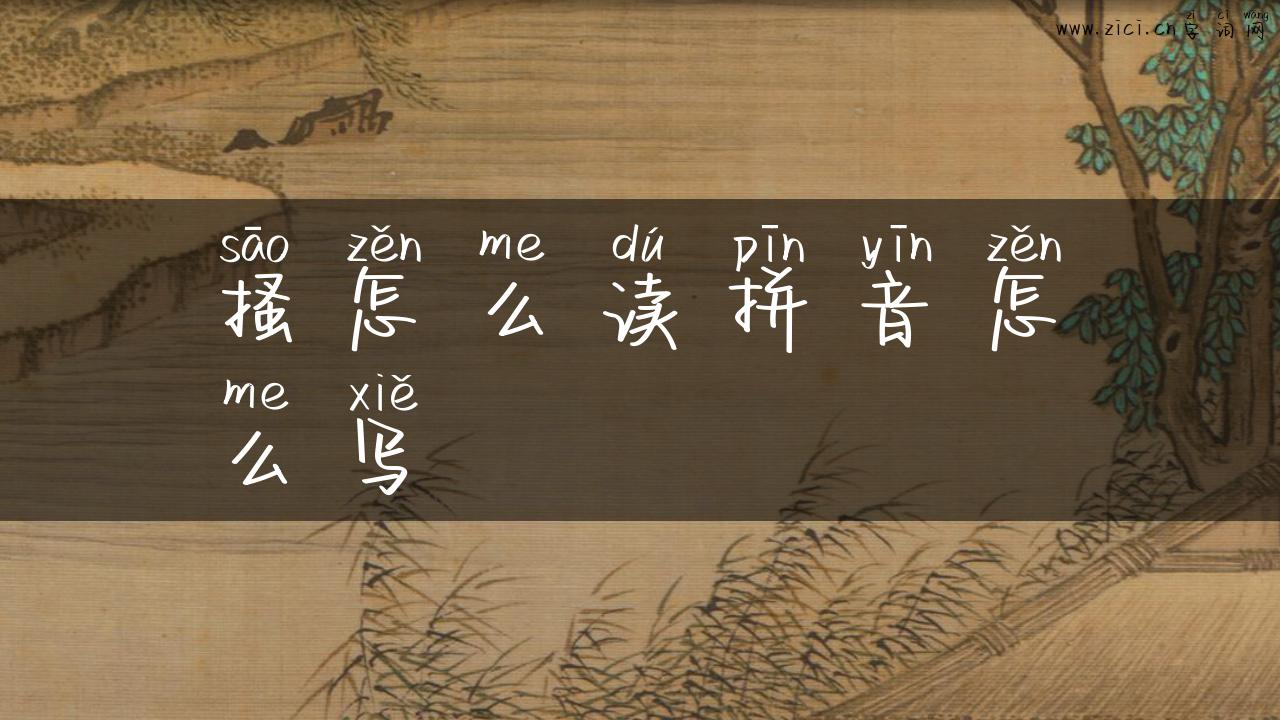 zì cí wǎng
www.zici.cn字词网
sāo zěn me dú pīn yīn zěn
搔怎么读拼音怎
me xiě
么写